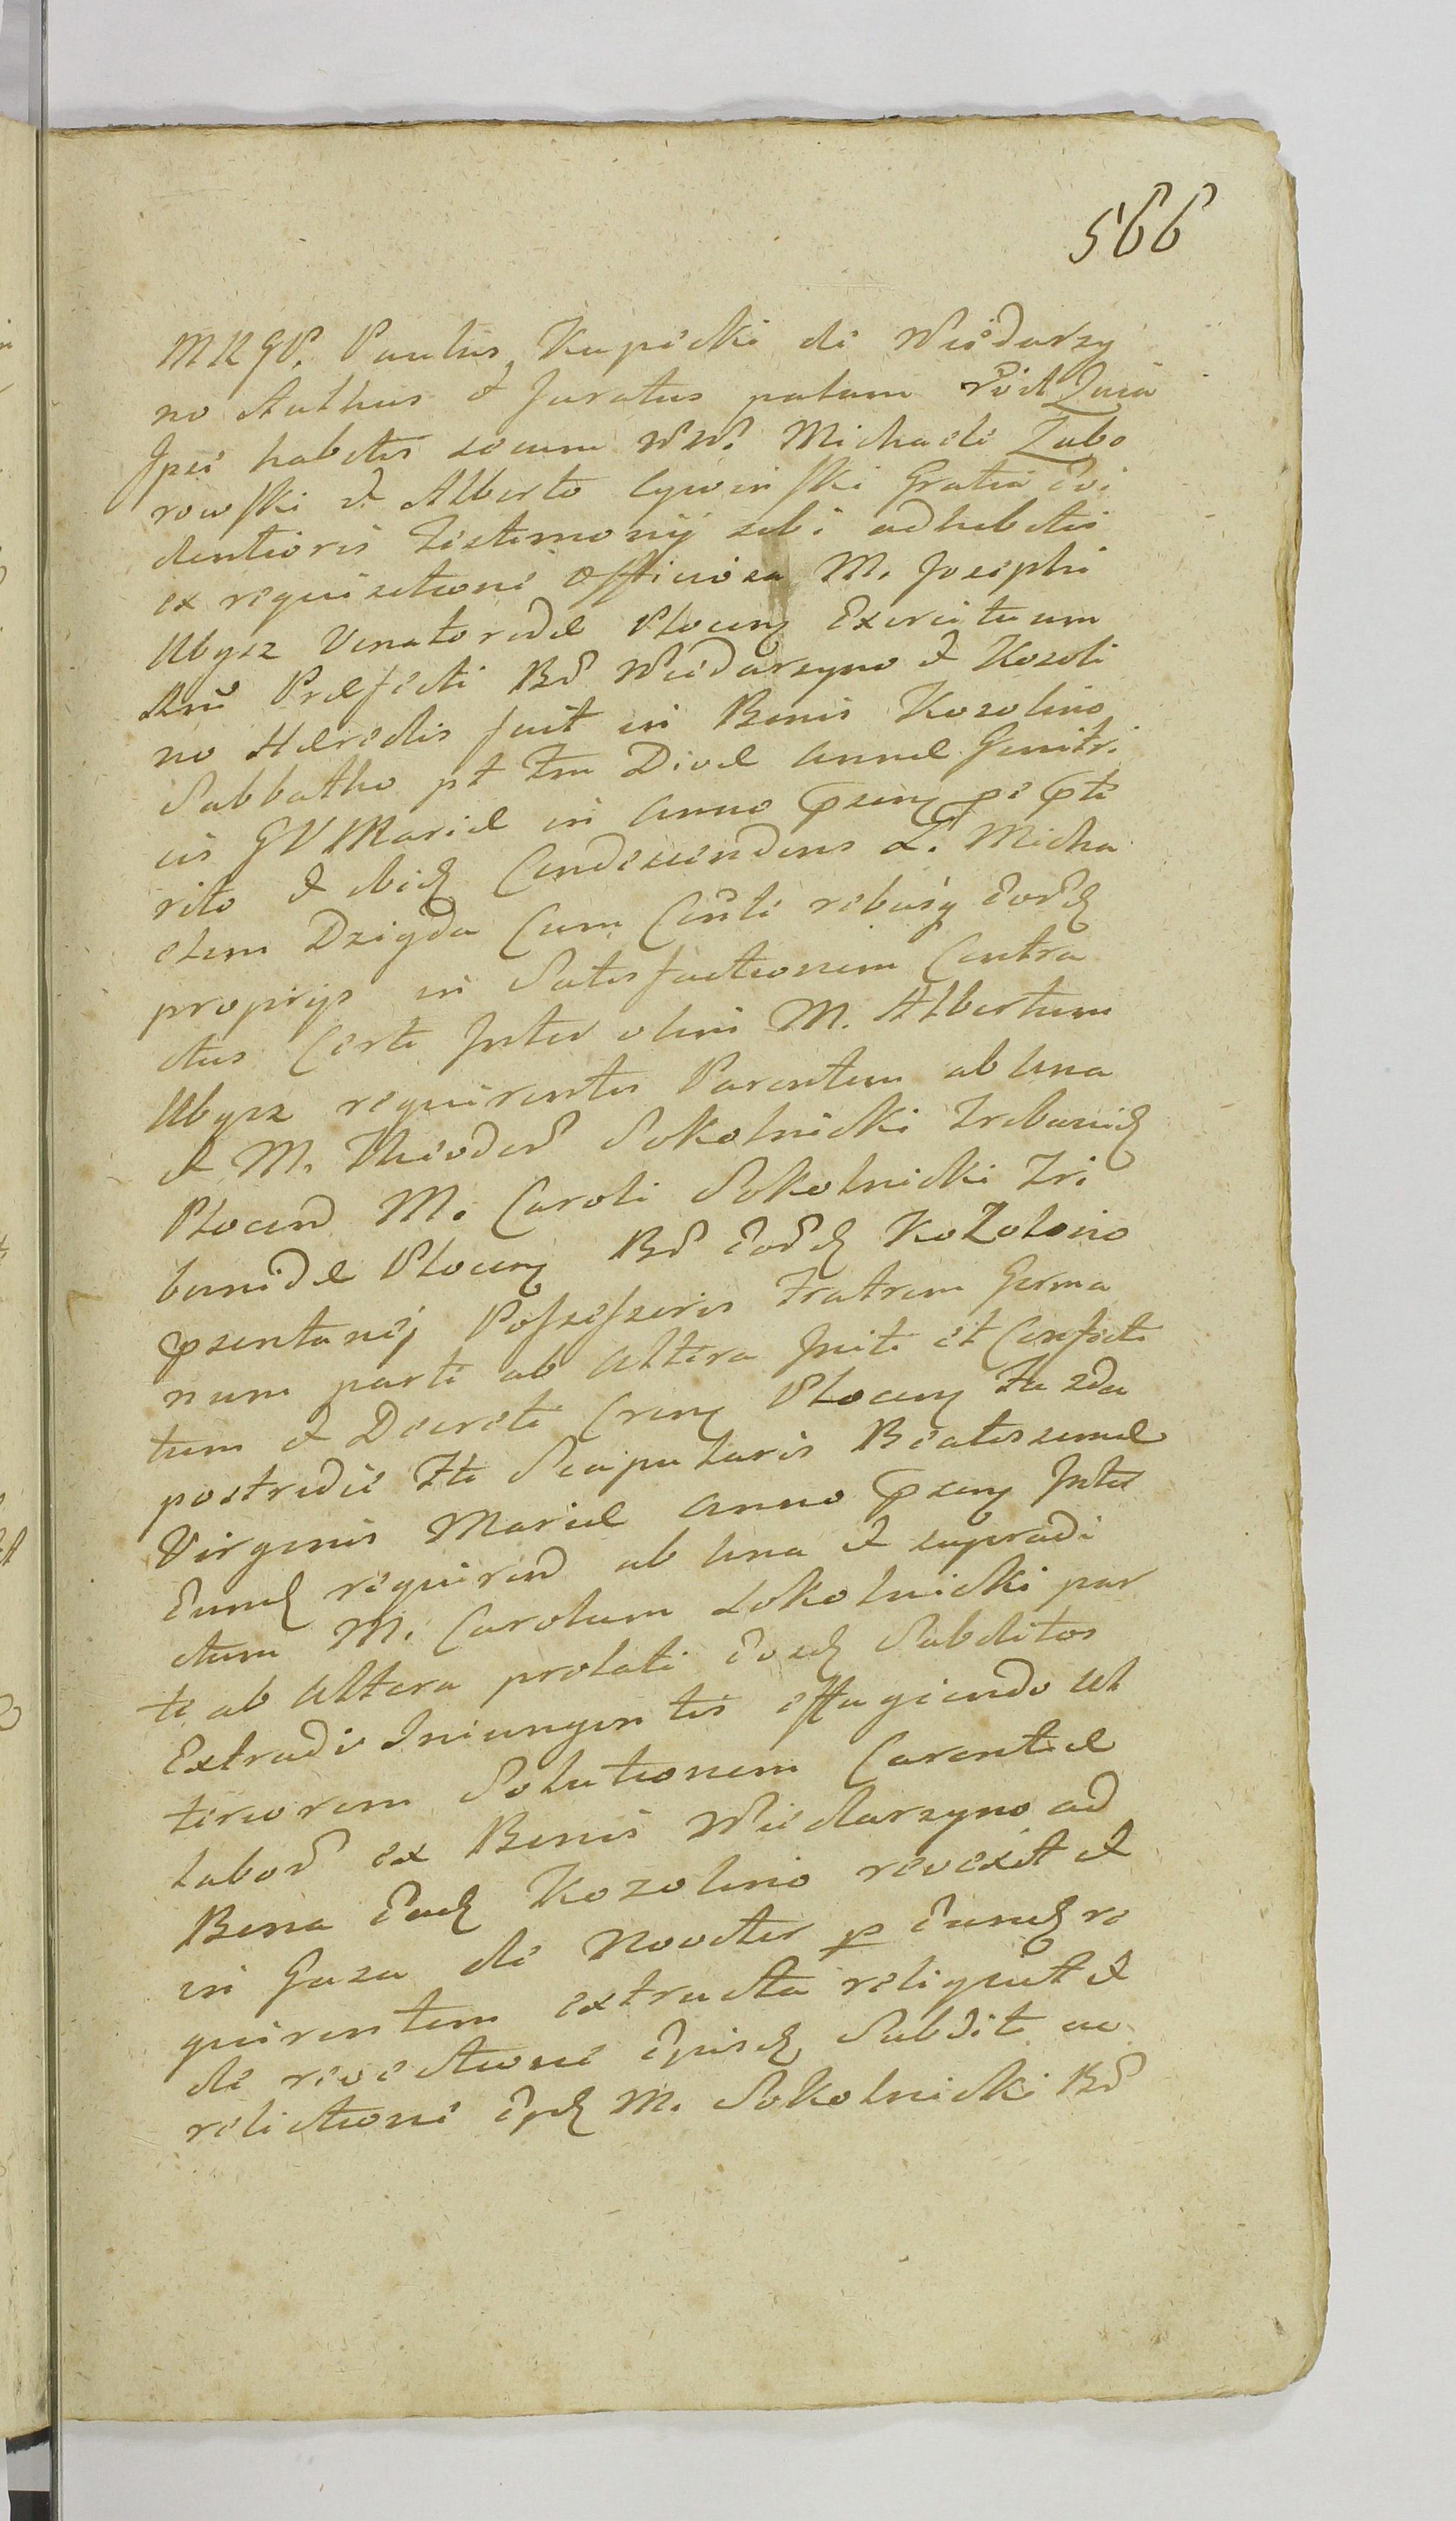 566
MRGP. Paulus Kupidki de Wiedarzy
no Authus & Juratus palam rōct Quia
Ipse habitis secum NN. Michaele Zabo
rowski et Alberto Cywinski Gratia Evi
dentioris Testimonij sibi adhibitis
ex requisitione Officiosa M. Josephi
Ubysz Venatoridæ Plocen Exercituum
Præfecti Bō Wiedarzyno et Kozoli
no Hæredis fuit in Bonis Kozolino
Sabbatho pt Fm Divæ Annæ Genitri
cis GV Mariæ in Anno p̄sen
rito et ibid Condescendens L. Micha
elem Dzigda Cum rebusq Eord
proprijs in Satisfactionem Contra
ctus Certi Inter olim M. Albertum
Ubysz requirentis Parentem ab una
et M. Theodor Sokolnicki Tribunid
Plocen M. Caroli Sokolnicki Tri
bunidæ Plocen Bō Eord Kozolino
p̄sentanej Possessoris Fratrem Germa
num parte ab Altera Initi et Confecti
tum et Decreti Plocen Fa 2da
postridie Fti Scapularis Beatissimæ
Virginis Mariæ Anno p̄sen Inter
Eund requiren ab una et supradi
ctum M. Carolum Sokolnicki par
te ab Altera prolati Eosd Subditos
Extradi Iniungentis effugiendo Ul
teriorem Solutionem Carentiæ
labor ex Bonis Wiedarzyno ad
Bona Ead Kozolino revexit et
in Gaza de Noviter p Eund re
quirentem extructa reliquit et
de revectione Eprisd Subdit ac
relictione Epd M. Sokolnicki Bō